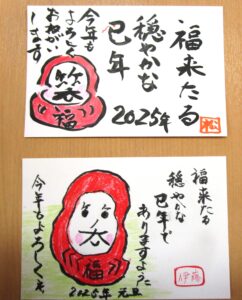 福来たる
穏やかな
巳年
2025年
今年も
よろしく
おねがい
します
笑
福
福来たる
穏やかな
巳年で
ありますように
今年もよろしくネ
笑
福
2025年 元旦
伊藤